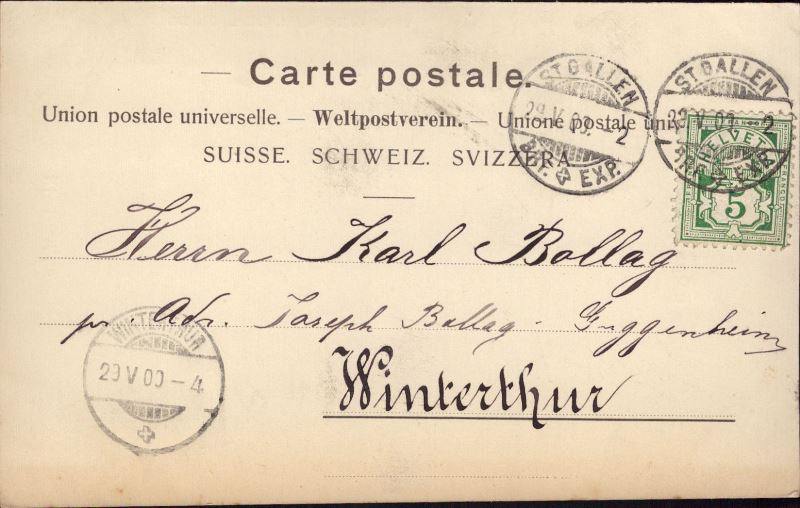 — Carte postale.
Union postale universelle. — Weltpostverein. — Unione postale
SUISSE. SCHWEIZ. SVIZZERA
ST. GALLEN
29 V 00. 2
BRF. EXP.
ST. GALLEN
2
BRF. EXP.
HELVETIA
5
Herrn Karl Bollag
pr. Adr. Joseph Bollag-Guggenheim
Winterthur
WINTERTHUR
29 V 00 - 4